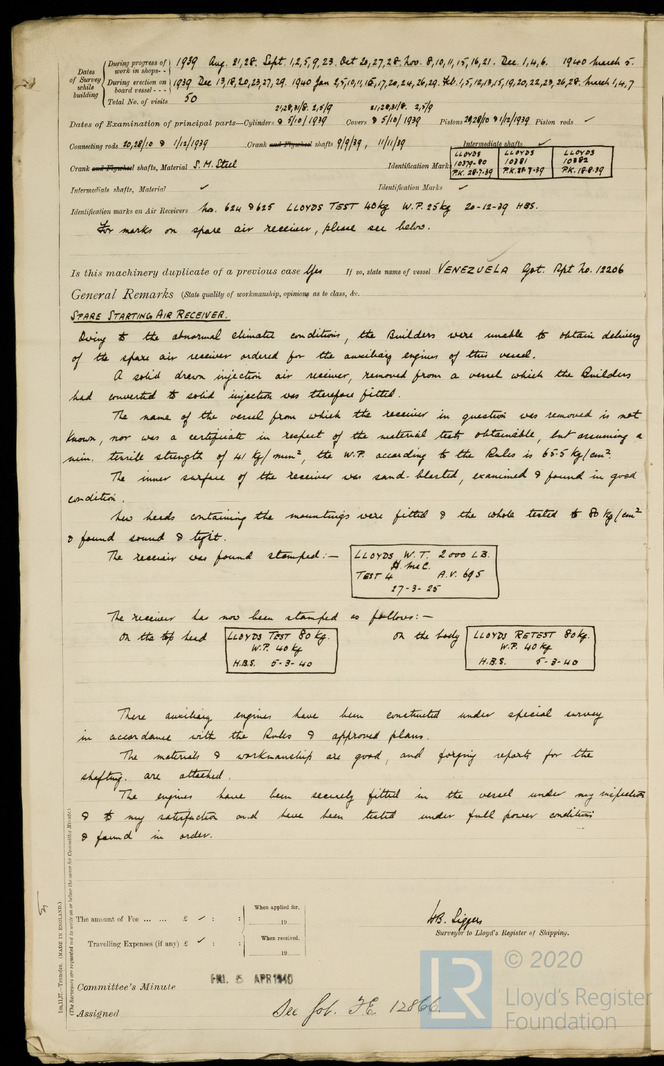 Dates of Survey while building
During progress of work in shops - - 1939 Aug. 21,28. Sept. 1,2,5,9,23. Oct 20,27,28. Nov. 8,10,11,15,16,21. Dec. 1,4,6. 1940 March 5.
During erection on board vessel - - - 1939 Dec 13,18,20,23,27,29. 1940 Jan 2,5,10,11,16,17,20,24,26,29. Feb. 1,5,12,13,15,19,20,22,23,26,28. March 1,4,7
Total No. of visits 50
21,28,31/8. 2,5/9 21,28,31/8. 2,5/9
Dates of Examination of principal parts—Cylinders & 5/10/1939 Covers & 5/10/1939 Pistons 20,28/10 & 1/12/1939 Piston rods ✓
Connecting rods 20,28/10 & 1/12/1939 Crank and Flywheel shafts 9/9/39, 11/11/39 Intermediate shafts ✓
Crank and Flywheel shafts, Material S.M. Steel Identification Marks
LLOYDS 10379-80 P.K. 28-7-39
LLOYDS 10381 P.K. 28-7-39
LLOYDS 10382 P.K. 18-8-39
Intermediate shafts, Material ✓ Identification Marks ✓
Identification marks on Air Receivers Nos. 624 & 625 LLOYDS TEST 40 kg W.P. 25 kg 20-12-39 HBS.
For marks on spare air receiver, please see below.
Is this machinery duplicate of a previous case Yes If so, state name of vessel VENEZUELA Got. Rpt No. 12206
General Remarks (State quality of workmanship, opinions as to class, &c.
SPARE STARTING AIR RECEIVER.
Owing to the abnormal climatic conditions, the Builders were unable to obtain delivery
of the spare air receiver ordered for the auxiliary engines of this vessel.
A solid drawn injection air receiver, removed from a vessel which the Builders
had converted to solid injection was therefore fitted.
The name of the vessel from which the receiver in question was removed is not
known, nor was a certificate in respect of the material tests obtainable, but assuming a
min. tensile strength of 41 kg/mm², the W.P. according to the Rules is 65.5 kg/cm².
The inner surface of the receiver was sand-blasted, examined & found in good
condition.
New heads containing the mountings were fitted & the whole tested to 80 kg/cm²
& found sound & tight.
The receiver was found stamped:—
LLOYDS W.T. 2000 LB.
H. McC.
TEST 4 A.V. 695
27-3-25
The receiver has now been stamped as follows:—
on the top head
LLOYDS TEST 80 kg.
W.P. 40 kg
H.B.S. 5-3-40
on the body
LLOYDS RETEST 80 kg.
W.P. 40 kg
H.B.S. 5-3-40
These auxiliary engines have been constructed under special survey
in accordance with the Rules & approved plans.
The materials & workmanship are good, and forging reports for the
shafting are attached.
The engines have been securely fitted in the vessel under my inspection
& to my satisfaction and have been tested under full power conditions
& found in order.
The amount of Fee ... ... £ ✓ : :
When applied for,
19
Travelling Expenses (if any) £ ✓ : :
When received,
19
HB. Siggers
Surveyor to Lloyd's Register of Shipping.
Committee's Minute
FRI. 5 APR 1940
Assigned
See Got. F.E. 12866.
(MADE IN ENGLAND.)
(The Surveyors are requested not to write on or below the space for Committee Minute.)
LR
© 2020
Lloyd's Register
Foundation